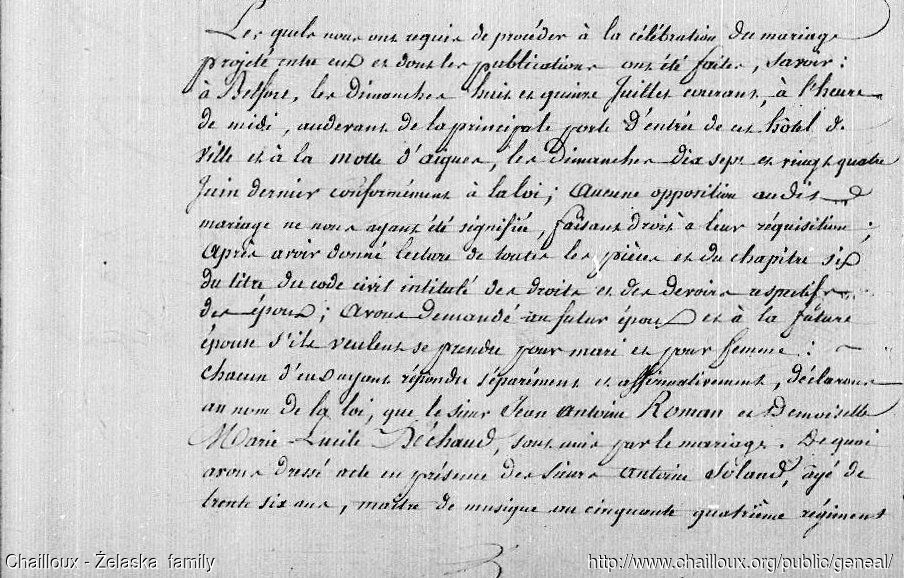 Les quels nous ont requis de procéder à la célébration du mariage
projeté entre eux et dont les publications ont été faites, savoir:
à Belfort, les dimanches huit et quinze Juillet courant, à l'heure
de midi, audevant de la principale porte d'entrée de cet hôtel de
ville et à la motte d'aigues, les dimanches dix sept et vingt quatre
Juin dernier conformément à la loi; aucune opposition au dit
mariage ne nous ayant été signifiée, faisant droit à leur réquisition;
après avoir donné lecture de toutes les pièces et du chapitre six
du titre du code civil intitulé des droits et des devoirs respectifs
des époux; avons demandé au futur époux et à la future
épouse s'ils veulent se prendre pour mari et pour femme:
chacun d'eux ayant répondu séparément et affirmativement, déclarons
au nom de la loi, que le sieur Jean antoine Roman et Demoiselle
Marie-Lucile Béchaud, sont unis par le mariage. De quoi
avons dressé acte en présence des sieurs antoine Soland, âgé de
trente six ans, maître de musique au cinquante quatrième régiment
Chailloux - Żelaska family
http://www.chailloux.org/public/geneal/